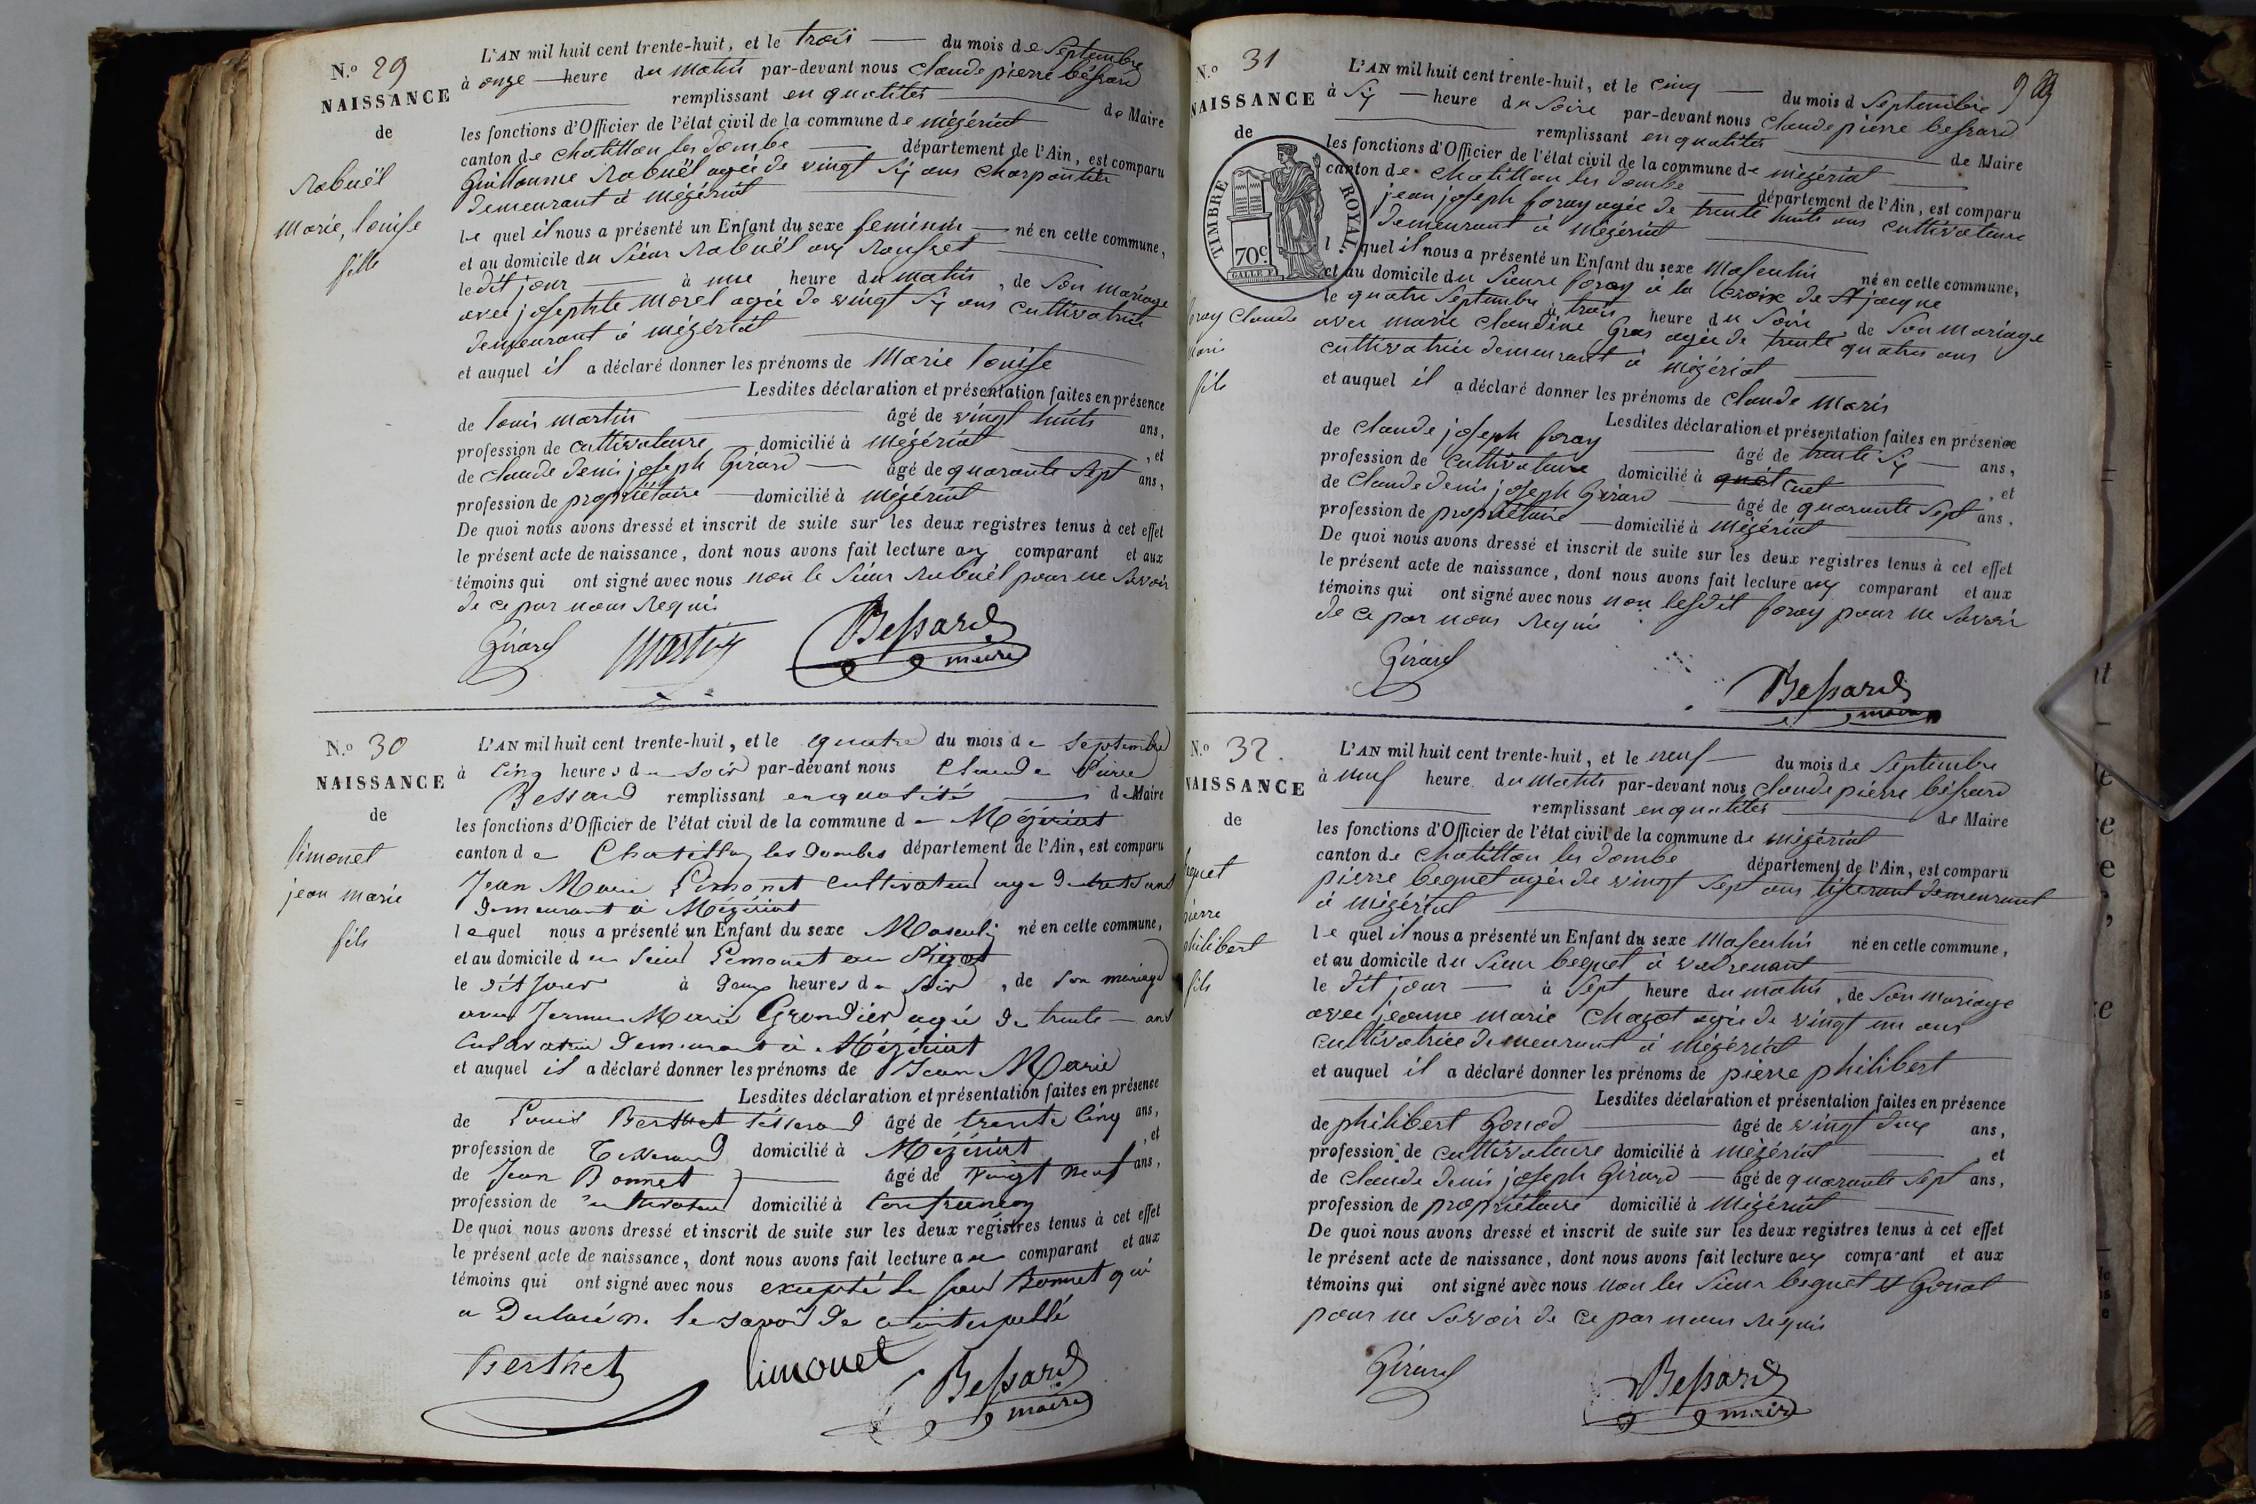 N.o 29
NAISSANCE
de
Rabuël
Marie, louise
fille
L'AN mil huit cent trente-huit, et le trois du mois de Septembre
à onze heure du matin par-devant nous claude pierre béssard
remplissant en qualités de Maire
les fonctions d'Officier de l'état civil de la commune de mézériat
canton de chatillon les dombe département de l'Ain, est comparu
Guillaume Rabuël agée de vingt six ans charpentier
demeurant à mézériat
le quel il nous a présenté un Enfant du sexe feminin né en cette commune,
et au domicile du sieur Rabuël aux
le dit jour à une heure du matin, de son mariage
avec josephte morel agée de vingt six ans cultivatrice
demeurant à mézériat
et auquel il a déclaré donner les prénoms de Marie louise
Lesdites déclaration et présentation faites en présence
de louis martin âgé de vingt huits ans,
profession de cultivateure domicilié à mézériat, et
de claude denis joseph Girard âgé de quarante sept ans,
profession de propriétaire domicilié à mézériat
De quoi nous avons dressé et inscrit de suite sur les deux registres tenus à cet effet
le présent acte de naissance, dont nous avons fait lecture aux comparant et aux
témoins qui ont signé avec nous non le sieur Rabuël pour ne savoir
de ce par nous requis
Girard Martin Bessard
maire
N.o 30
NAISSANCE
de
limonet
jean marie
fils
L'AN mil huit cent trente-huit, et le quatre du mois de septembre
à cinq heures du soir par-devant nous Claude Pierre
Bessard remplissant en qualité de Maire
les fonctions d'Officier de l'état civil de la commune de Mézériat
canton de Chatillon les Dombes département de l'Ain, est comparu
Jean Marie Limonet cultivateur age de trente ans
demeurant à Mézériat
lequel nous a présenté un Enfant du sexe Masculin né en cette commune,
et au domicile du sieur Limonet au
le dit jour à deux heures du soir, de son mariage
avec Jeanne Marie Grondier agée de trente ans
cultivatrice demeurant à Mézériat
et auquel il a déclaré donner les prénoms de Jean Marie
Lesdites déclaration et présentation faites en présence
de Louis Berthet tisserand âgé de trente cinq ans,
profession de Tisserand domicilié à Mézériat, et
de Jean Bonnet âgé de vingt neuf ans,
profession de cultivateur domicilié à Confrançon
De quoi nous avons dressé et inscrit de suite sur les deux registres tenus à cet effet
le présent acte de naissance, dont nous avons fait lecture au comparant et aux
témoins qui ont signé avec nous excepté le Bonnet qui
a Declaré ne le savoir de ce interpellé
Berthet limonet Bessard
maire
N.o 31
NAISSANCE
de
TIMBRE ROYAL.
70c.
foray Claude
Marie
fils
L'AN mil huit cent trente-huit, et le cinq du mois d Septembre
à six heure du soire par-devant nous claude pierre bessard
remplissant en qualités de Maire
les fonctions d'Officier de l'état civil de la commune de mézériat
canton de chatillon les dombe département de l'Ain, est comparu
jean joseph foray agée de trente huits ans cultivateure
demeurant à mézériat
l quel il nous a présenté un Enfant du sexe Masculin né en cette commune,
et au domicile du sieure foray à la croix de St jacque
le quatre septembre à trois heure du soire de son mariage
avec marie claudine Gras agée de trente quatres ans
cultivatrice demeurant à mézériat
et auquel il a déclaré donner les prénoms de claude Marie
Lesdites déclaration et présentation faites en présence
de claude joseph foray âgé de trente six ans,
profession de cultivateure domicilié à cuet, et
de Claude denis joseph Girard âgé de quarante sept ans,
profession de propriétaire domicilié à mézériat
De quoi nous avons dressé et inscrit de suite sur les deux registres tenus à cet effet
le présent acte de naissance, dont nous avons fait lecture aux comparant et aux
témoins qui ont signé avec nous non lesdit foray pour ne savoir
de ce par nous requis
Girard
Bessard
maire
N.o 32.
NAISSANCE
de
bequet
pierre
philibert
fils
L'AN mil huit cent trente-huit, et le neuf du mois de Septembre
à neuf heure du matin par-devant nous claude pierre béssard
remplissant en qualités de Maire
les fonctions d'Officier de l'état civil de la commune de mézériat
canton de chatillon les dombe département de l'Ain, est comparu
pierre bequet agée de vingt sept ans tiserant demeurant
à mézériat
le quel il nous a présenté un Enfant du sexe Masculin né en cette commune,
et au domicile du sieur bequet à vadrenant
le dit jour à sept heure du matin, de son mariage
avec jeanne marie Chazot agée de vingt un ans
cultivatrice demeurant à mézériat
et auquel il a déclaré donner les prénoms de pierre philibert
Lesdites déclaration et présentation faites en présence
de philibert Gonod âgé de vingt deux ans,
profession de cultivateure domicilié à mézériat et
de claude denis joseph Girard âgé de quarante sept ans,
profession de propriétaire domicilié à mézériat
De quoi nous avons dressé et inscrit de suite sur les deux registres tenus à cet effet
le présent acte de naissance, dont nous avons fait lecture aux comparant et aux
témoins qui ont signé avec nous non les sieur bequet et Gonot
pour ne savoir de ce par nous requis
Girard Bessard
maire